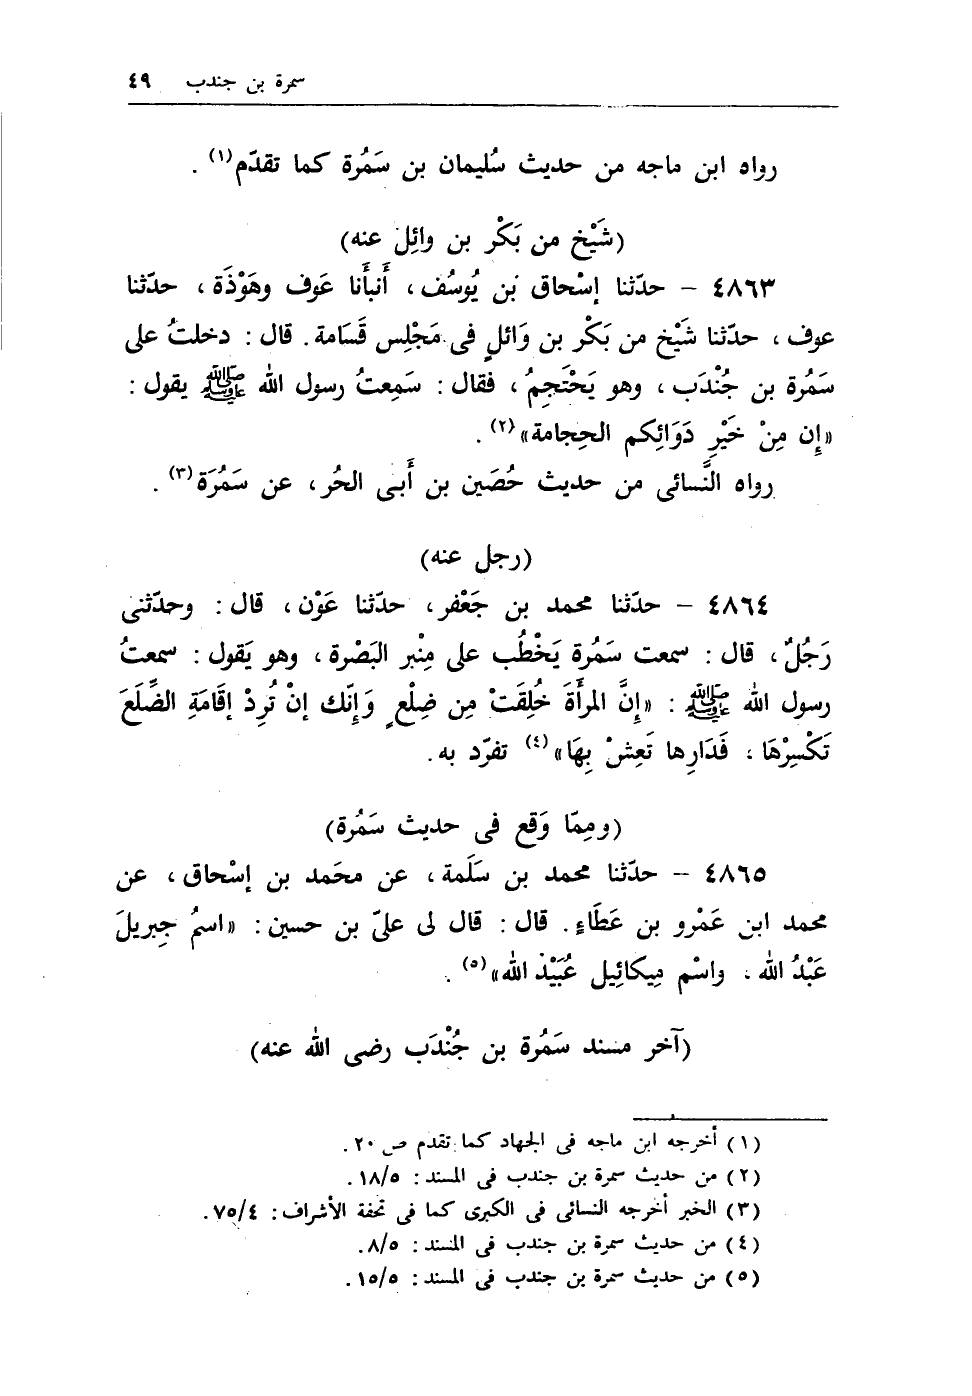 سمرة بن جندب ٤٩
رواه ابن ماجه من حديث سُليمان بن سَمُرة كما تقدّم(١) .
(شَيْخ من بَكْر بن وائِل عنه)
٤٨٦٣ – حدّثنا إسْحاق بَن يُوسُف ، أَنبأَنا عَوف وهَوْذَة ، حدّثنا
عوف ، حدّثنا شَيْخ من بَكْر بن وَائلٍ فى مَجْلِس قَسَامة . قال : دخلتُ على
سَمُرة بن جُنْدَب ، وهو يَحْتَجِمُ ، فقال : سَمِعتُ رسول الله ﷺ يقول :
«إِن مِنْ خَيْرِ دَوَائِكم الحِجامة»(٢) .
رواه النَّسائى من حديث حُصَين بن أَبى الحُر ، عن سَمُرَة(٣) .
(رجل عنه)
٤٨٦٤ – حدّثنا محمد بن جَعْفر ، حدّثنا عَوْن ، قال : وحدّثنى
رَجُلٌ ، قال : سمعت سَمُرة يَخْطُب على مِنْبر البَصْرة ، وهو يَقول : سمعتُ
رسول الله ﷺ : «إِنَّ المرأَةَ خُلِقَتْ مِن ضِلْعٍ وَإِنّك إنْ تُرِدْ إقَامَةِ الضِّلَعَ
تَكْسِرْهَا ، فَدَارِها تَعِشْ بِهَا»(٤) تفرّد به .
(ومِمّا وَقع فى حديث سَمُرة)
٤٨٦٥ – حدّثنا محمد بن سَلَمة ، عن محَمد بن إسْحاق ، عن
محمد ابن عَمْرو بن عَطَاءٍ . قال : قال لى علىّ بن حسين : «اسمُ جِبريلَ
عَبْدُ الله ، واسْم مِيكائِيل عُبَيْدْ الله»(٥) .
(آخر مسند سَمُرة بن جُنْدَب رضى الله عنه)
(١) أخرجه ابن ماجه فى الجهاد كما تقدم ص ٢٠ .
(٢) من حديث سمرة بن جندب فى المسند : ١٨/٥ .
(٣) الخبر أخرجه النسائى فى الكبرى كما فى تحفة الأشراف : ٧٥/٤ .
(٤) من حديث سمرة بن جندب فى المسند : ٨/٥ .
(٥) من حديث سمرة بن جندب فى المسند : ١٥/٥ .